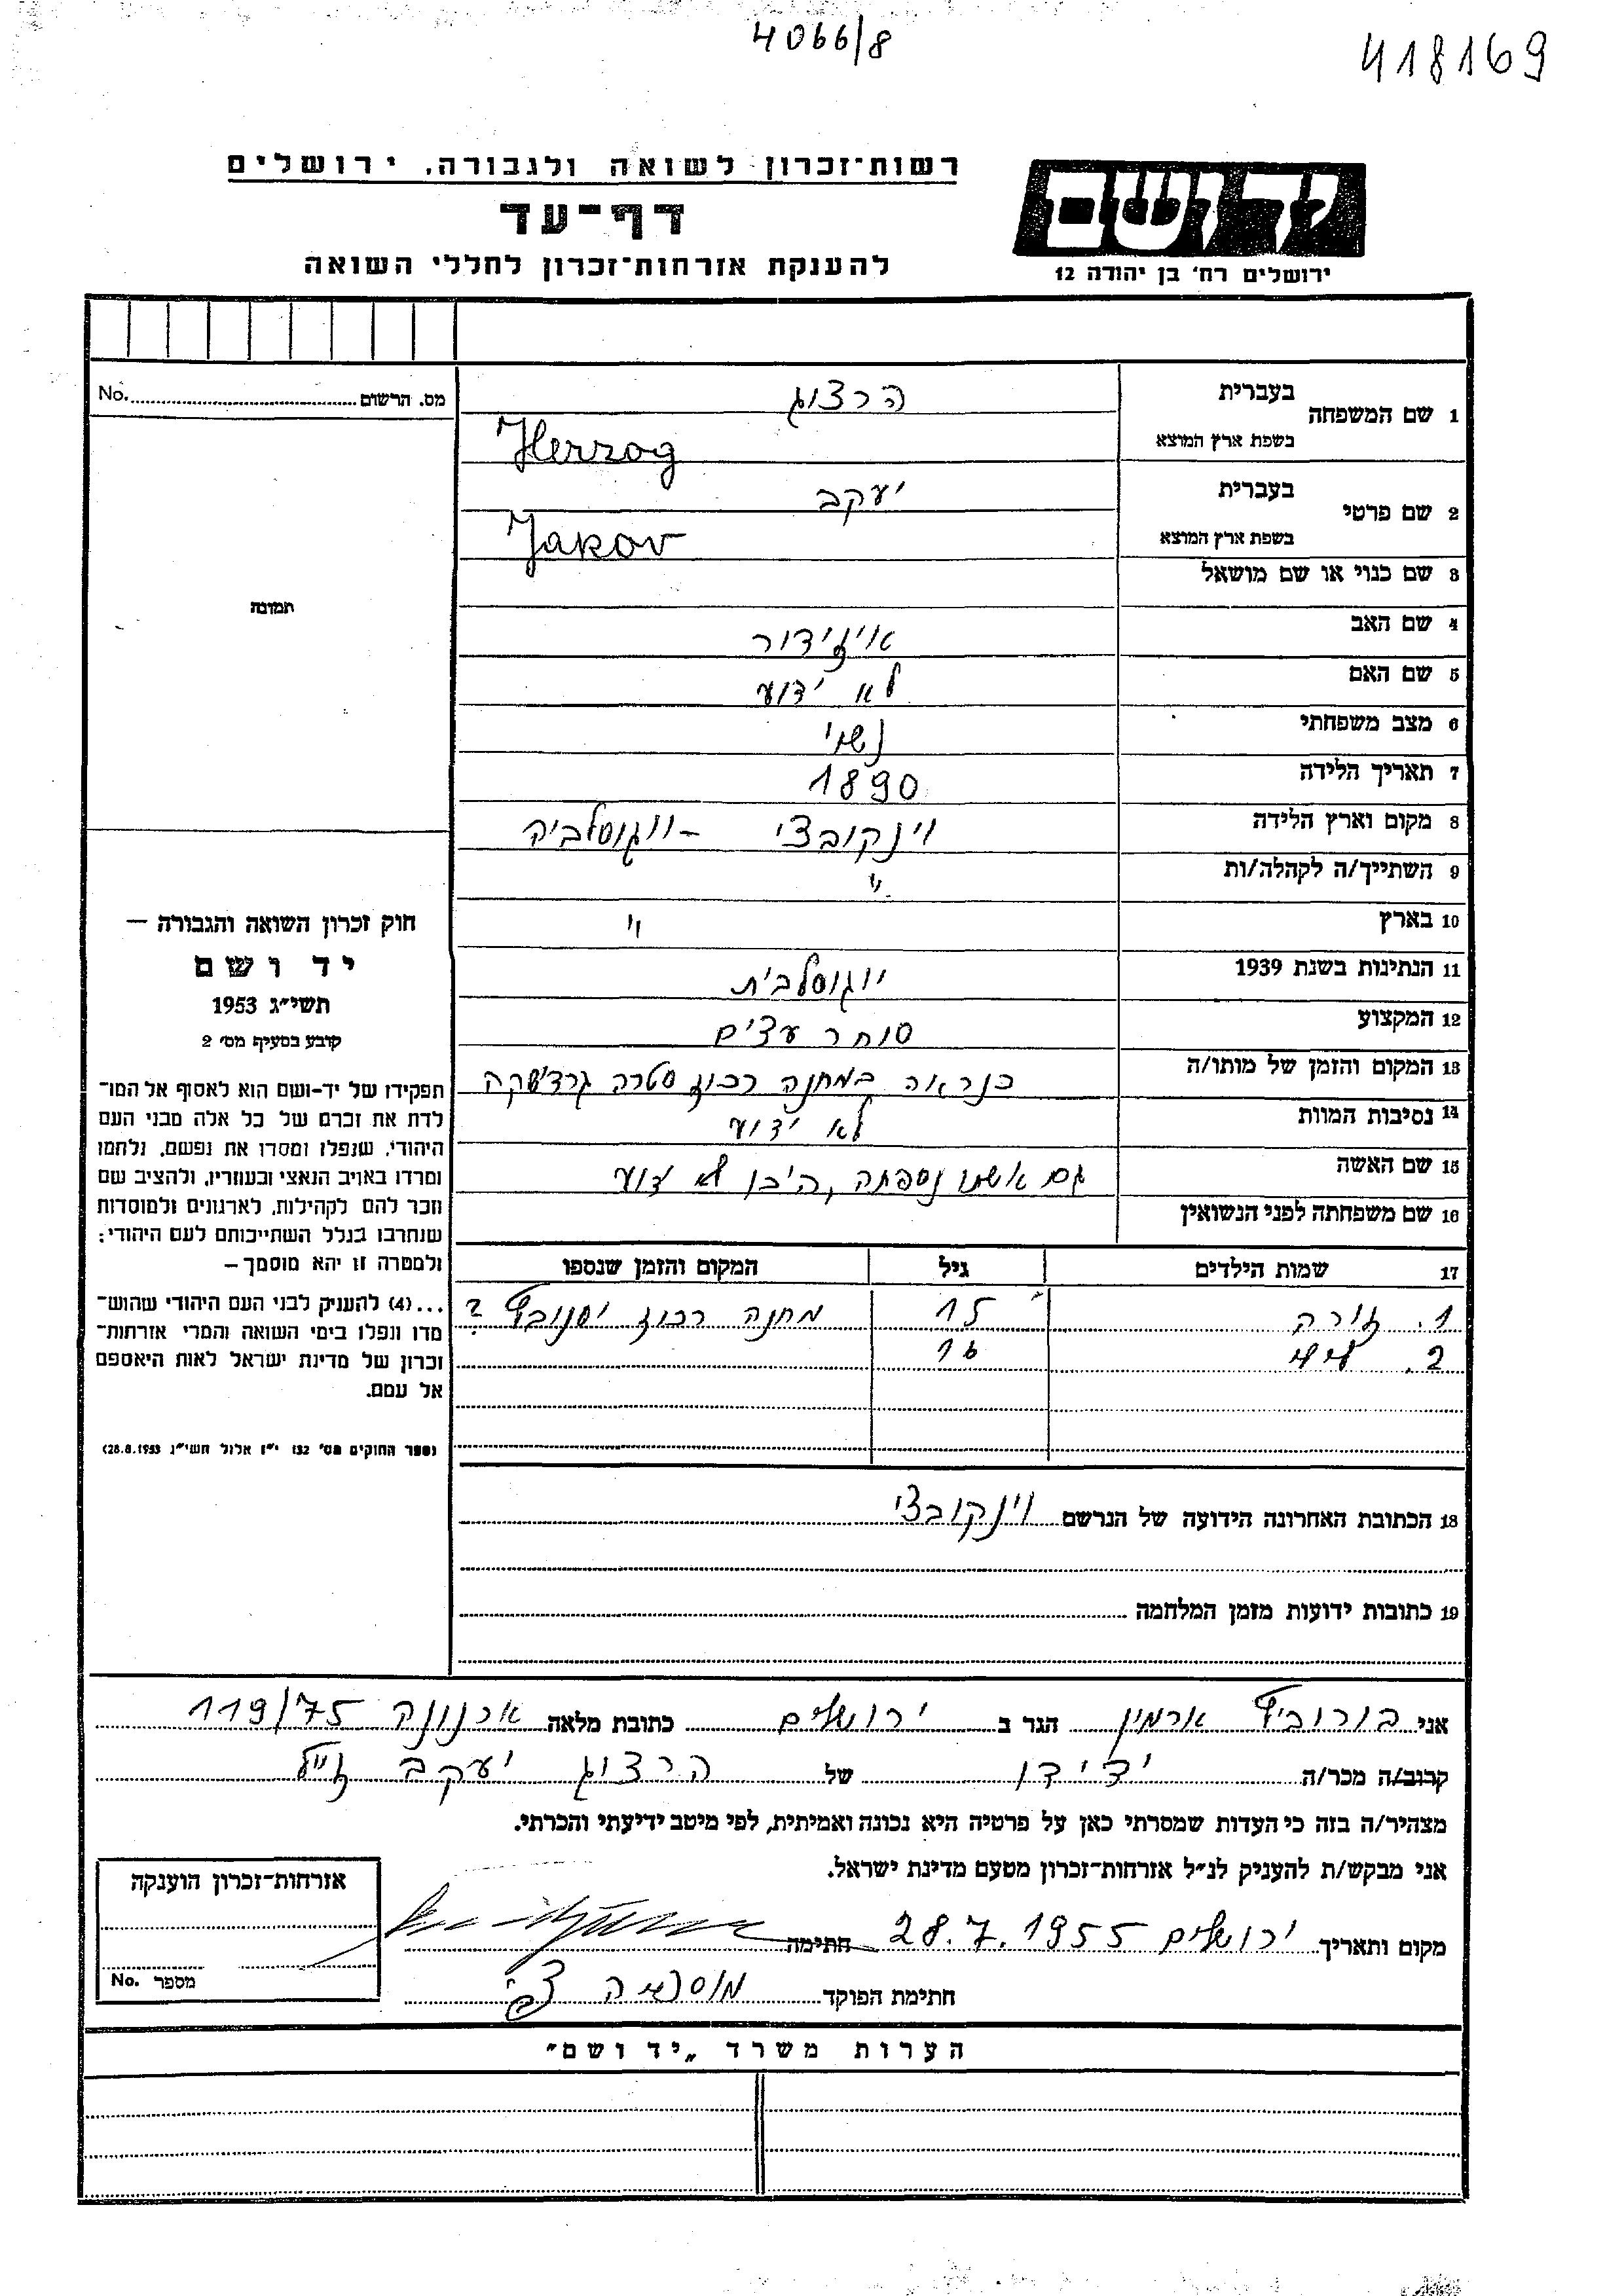 4066/8
418169
רשות־זכרון לשואה ולגבורה, ירושלים
דף־עד
להענקת אזרחות־זכרון לחללי השואה
יד ושם
ירושלים רח' בן יהודה 12
מס. הרשום No.
תמונה
1 שם המשפחה בעברית הרצוג
בשפת ארץ המוצא Herzog
2 שם פרטי בעברית יעקב
בשפת ארץ המוצא Jakov
3 שם כנוי או שם מושאל
4 שם האב איזידור
5 שם האם לא ידוע
6 מצב משפחתי נשוי
7 תאריך הלידה 1890
8 מקום וארץ הלידה וינקובצי – יוגוסלביה
9 השתייך/ה לקהלה/ות "
10 בארץ "
11 הנתינות בשנת 1939 יוגוסלבית
12 המקצוע סוחר עצים
13 המקום והזמן של מותו/ה כנראה במחנה רכוז סטרה גרדישקה
14 נסיבות המוות לא ידוע
15 שם האשה גם אשתו נספתה, היכן לא ידוע
16 שם משפחתה לפני הנשואין
17 שמות הילדים גיל המקום והזמן שנספו
1. זורה 15 מחנה רכוז יסנובץ ?
2. 16
18 הכתובת האחרונה הידועה של הנרשם וינקובצי
19 כתובות ידועות מזמן המלחמה
חוק זכרון השואה והגבורה –
יד ושם
תשי״ג 1953
קובע בסעיף מס' 2
תפקידו של יד-ושם הוא לאסוף אל המו־
לדת את זכרם של כל אלה מבני העם
היהודי, שנפלו ומסרו את נפשם, נלחמו
ומרדו באויב הנאצי ובעוזריו, ולהציב שם
וזכר להם לקהילות, לארגונים ולמוסדות
שנחרבו בגלל השתייכותם לעם היהודי;
ולמטרה זו יהא מוסמך –
...(4) להעניק לבני העם היהודי שהוש־
מדו ונפלו בימי השואה והמרי אזרחות־
זכרון של מדינת ישראל לאות היאספם
אל עמם.
(ספר החוקים מס' 132 י״ז אלול תשי״ג 28.8.1953)
אני בורוביץ ארמין הגר ב ירושלים כתובת מלאה ארנונה 119/75
קרוב/ה מכר/ה ידידו של הרצוג יעקב ז"ל
מצהיר/ה בזה כי העדות שמסרתי כאן על פרטיה היא נכונה ואמיתית, לפי מיטב ידיעתי והכרתי.
אני מבקש/ת להעניק לנ״ל אזרחות־זכרון מטעם מדינת ישראל.
מקום ותאריך ירושלים 28.7.1955 חתימה
חתימת הפוקד צבי
אזרחות־זכרון הוענקה
מספר No.
הערות משרד „יד ושם״